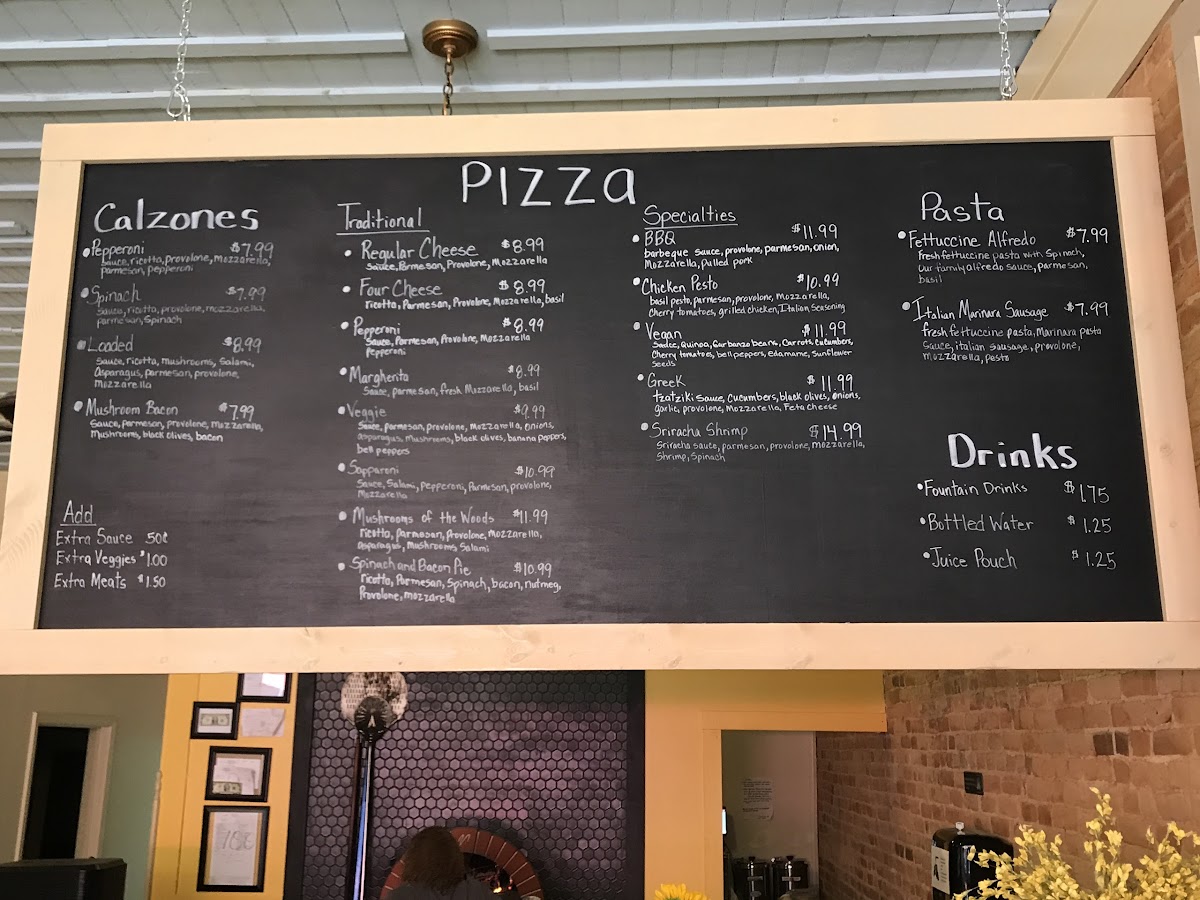 Pizza
Calzones
Pepperoni $7.99
Sauce, ricotta, provolone, mozzarella,
parmesan, pepperoni
Spinach $7.99
Sauce, ricotta, provolone, mozzarella,
parmesan, Spinach
Loaded $8.99
Sauce, ricotta, mushrooms, Salami,
Asparagus, parmesan, provolone,
Mozzarella
Mushroom Bacon $7.99
Sauce, parmesan, provolone, mozzarella,
Mushrooms, black olives, bacon
Add
Extra Sauce .50¢
Extra Veggies $1.00
Extra Meats $1.50
Traditional
Regular Cheese $8.99
Sauce, Parmesan, Provolone, Mozzarella
Four Cheese $8.99
ricotta, Parmesan, Provolone, Mozzarella, basil
Pepperoni $8.99
Sauce, Parmesan, Provolone, Mozzarella
Pepperoni
Margherita $8.99
Sauce, parmesan, fresh Mozzarella, basil
Veggie $9.99
Sauce, parmesan, provolone, mozzarella, onions,
asparagus, mushrooms, black olives, banana peppers,
bell peppers
Sopparoni $10.99
Sauce, Salami, Pepperoni, Parmesan, provolone,
Mozzarella
Mushrooms of the Woods $11.99
ricotta, parmesan, Provolone, Mozzarella,
asparagus, mushrooms, Salami
Spinach and Bacon Pie $10.99
ricotta, Parmesan, Spinach, bacon, nutmeg,
Provolone, mozzarella
Specialties
BBQ $11.99
barbeque Sauce, provolone, parmesan, onion,
Mozzarella, Pulled pork
Chicken Pesto $10.99
basil pesto, parmesan, provolone, mozzarella,
Cherry tomatoes, grilled chicken, Italian Seasoning
Vegan $11.99
Sauce, Quinoa, Garbanzo beans, Carrots, Cucumbers,
Cherry tomatoes, bell peppers, edamame, Sunflower
Seeds
Greek $11.99
tzatziki sauce, Cucumbers, black olives, onions,
garlic, provolone, Mozzarella, Feta Cheese
Sriracha Shrimp $14.99
Sriracha sauce, parmesan, provolone, mozzarella,
Shrimp, Spinach
Pasta
Fettuccine Alfredo $7.99
Fresh fettuccine pasta with Spinach,
Our family alfredo sauce, parmesan,
basil
Italian Marinara Sausage $7.99
fresh fettuccine pasta, Marinara pasta
Sauce, italian sausage, provolone,
mozzarella, pesto
Drinks
Fountain Drinks $1.75
Bottled Water $1.25
Juice Pouch $1.25